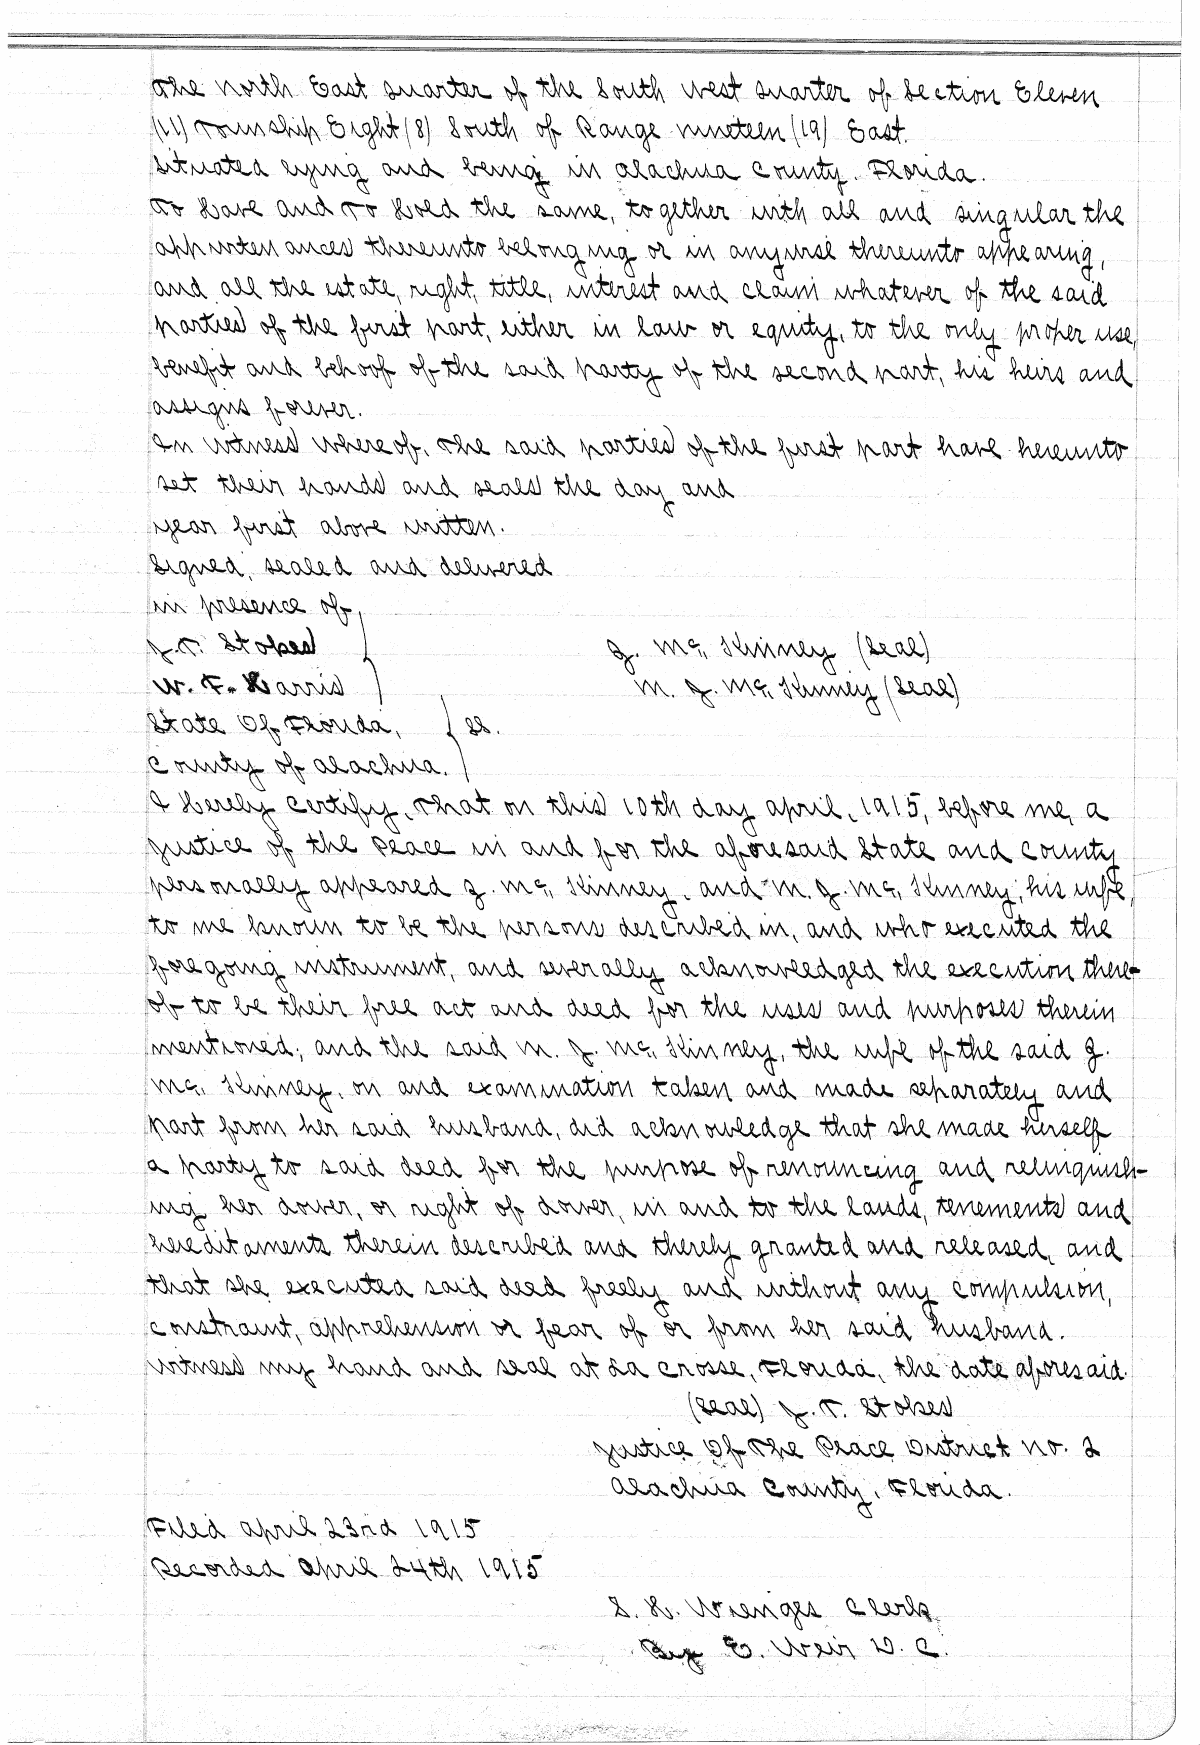 The North East quarter of the South West quarter of Section Eleven
(11) Township Eight (8) South of Range nineteen (19) East.
Situated lying and being in Alachua County. Florida.
To Have and To Hold the same, together with all and singular the
appurtenances thereunto belonging or in anywise thereunto appearing,
and all the estate, right, title, interest and claim whatever of the said
parties of the first part, either in law or equity, to the only proper use,
benefit and behoof of the said party of the second part, his heirs and
assigns forever.
In Witness Whereof, The said parties of the first part have hereunto
set their hands and seals the day and
year first above written.
Signed, sealed and delivered
in presence of
J.T. Stokes J. Mc, Kinney (Seal)
W. F. Harris M. J. Mc, Kinney (Seal)
State Of Florida, SS.
County of Alachua.
I Hereby Certify, That on this 10th day april, 1915, before me, a
Justice of the Peace in and for the aforesaid State and County
personally appeared J. Mc, Kinney, and M. J. Mc, Kinney, his wife,
to me known to be the persons described in, and who executed the
foregoing instrument, and severally acknowledged the execution there-
of to be their free act and deed for the uses and purposes therein
mentioned; and the said M. J. Mc, Kinney, the wife of the said J.
Mc, Kinney, on and examination taken and made separately and
part from her said husband, did acknowledge that she made herself
a party to said deed for the purpose of renouncing and relinquish-
ing her dower, or right of dower, in and to the lands, tenements and
hereditaments therein described and thereby granted and released, and
that she executed said deed freely and without any compulsion,
constraint, apprehension or fear of or from her said husband.
Witness my hand and seal at La Crosse, Florida, the date aforesaid.
(Seal) J. T. Stokes
Justice Of The Peace District No. 2
Alachua County, Florida.
Filed april 23rd 1915
Recorded April 24th 1915
S. H. Wienges Clerk
By E. Weir D. C.